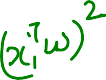 (x_i^T w)^2